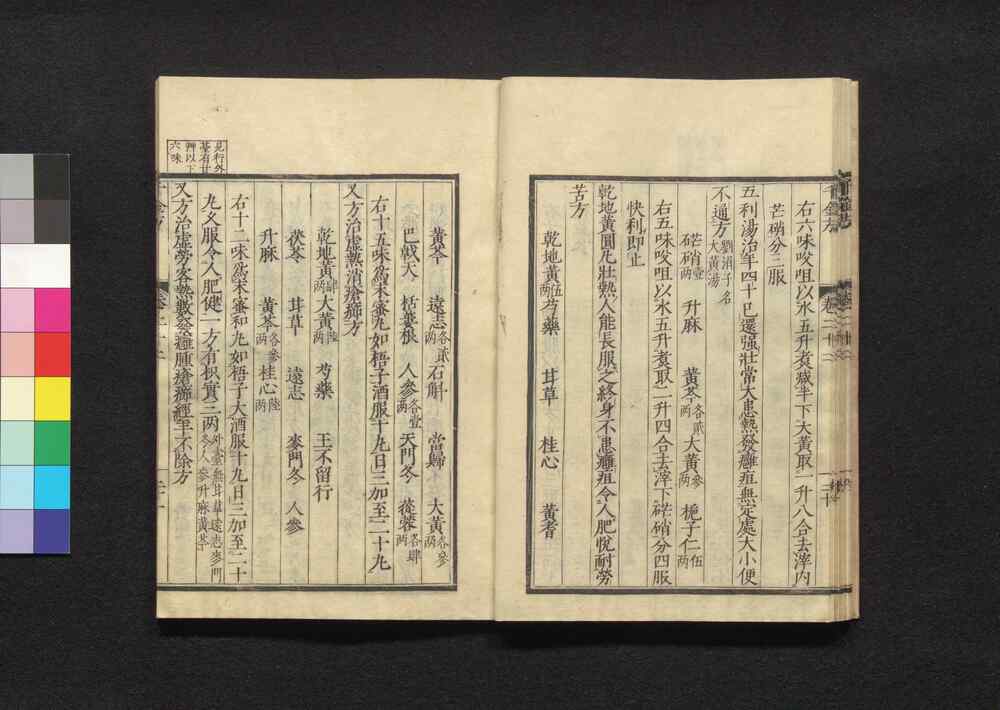 右六味㕮咀以水五升煮減半下大黃取一升八合去滓内
芒硝分三服
五利湯治年四十已還强壯常大患熱發癰疽無定處大小便
不通方劉涓子名大黃湯
芒硝壹兩 升麻 黃芩各貳兩 大黃參兩 梔子仁伍兩
右五味㕮咀以水五升煮取二升四合去滓下硭硝分四服
快利即止
乾地黃圓凡壯熱人能長服之終身不患癰疽令人肥悅耐勞
苦方
乾地黃伍兩 芍藥 甘草 桂心 黃耆
黃芩 遠志各貳兩 石斛 當歸 大黃各參兩
巴戟天 栝蔞根 人參各壹兩 天門冬 蓯蓉各肆兩
右十五味爲末蜜丸如梧子酒服十丸日三加至二十丸
又方治虛熱消瘡癤方
乾地黃肆兩 大黃陸兩 芍藥 王不留行
茯苓 甘草 遠志 麥門冬 人參
升麻 黃芩各參兩 桂心陸兩
右十二味爲末蜜和丸如梧子大酒服十丸日三加至二十
丸久服令人肥健一方有枳實三兩外臺無甘草遠志麥門冬人參升麻黃芩
又方治虛勞客熱數發癰腫瘡癤經年不除方
千金方
卷二十二
二十
見行外
臺有甘
艸以下
六味